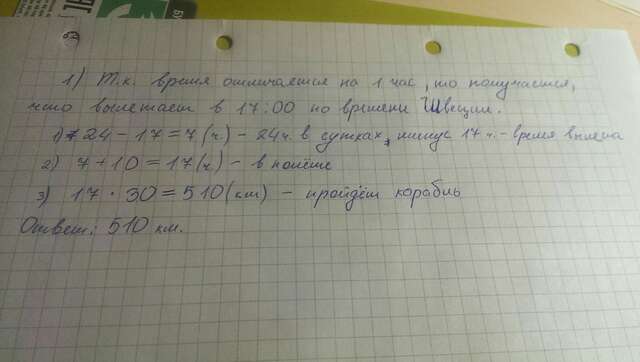 1) Т.к. время отличается на 1 час, то получается,
что вылетает в 17:00 по времени Швеции.
1) 24 - 17 = 7 (ч) - 24ч. в сутках, минус 17 ч. - время вылета
2) 7 + 10 = 17 (ч) - в полёте
3) 17 · 30 = 510 (км) - пройдёт корабль
Ответ: 510 км.